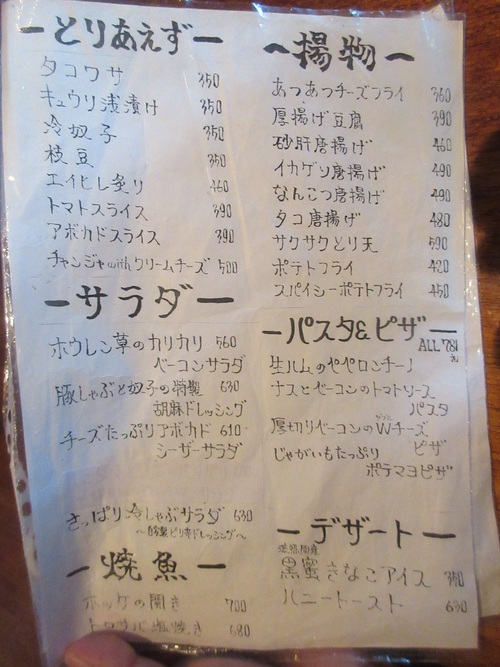 ーとりあえずー
タコワサ 350
キュウリ浅漬け 350
冷奴子 350
枝豆 350
エイヒレ炙り 460
トマトスライス 390
アボカドスライス 390
チャンジャwithクリームチーズ 500
ーサラダー
ホウレン草のカリカリ 560
ベーコンサラダ
豚しゃぶと奴子の特製 630
胡麻ドレッシング
チーズたっぷりアボカド 610
シーザーサラダ
さっぱり冷しゃぶサラダ 630
〜自家製ピリ辛ドレッシング〜
ー焼魚ー
ホッケの開き 700
トロサバ塩焼き 680
〜揚物〜
あつあつチーズフライ 360
厚揚げ豆腐 390
砂肝唐揚げ 460
イカゲソ唐揚げ 490
なんこつ唐揚げ 490
タコ唐揚げ 480
サクサクとり天 590
ポテトフライ 420
スパイシーポテトフライ 450
ーパスタ&ピザー
ALL 781
生ハムのペペロンチーノ
ナスとベーコンのトマトソース
パスタ
厚切りベーコンのWチーズ
ピザ
じゃがいもたっぷり
ポテマヨピザ
ーデザートー
黒蜜きなこアイス 350
ハニートースト 630